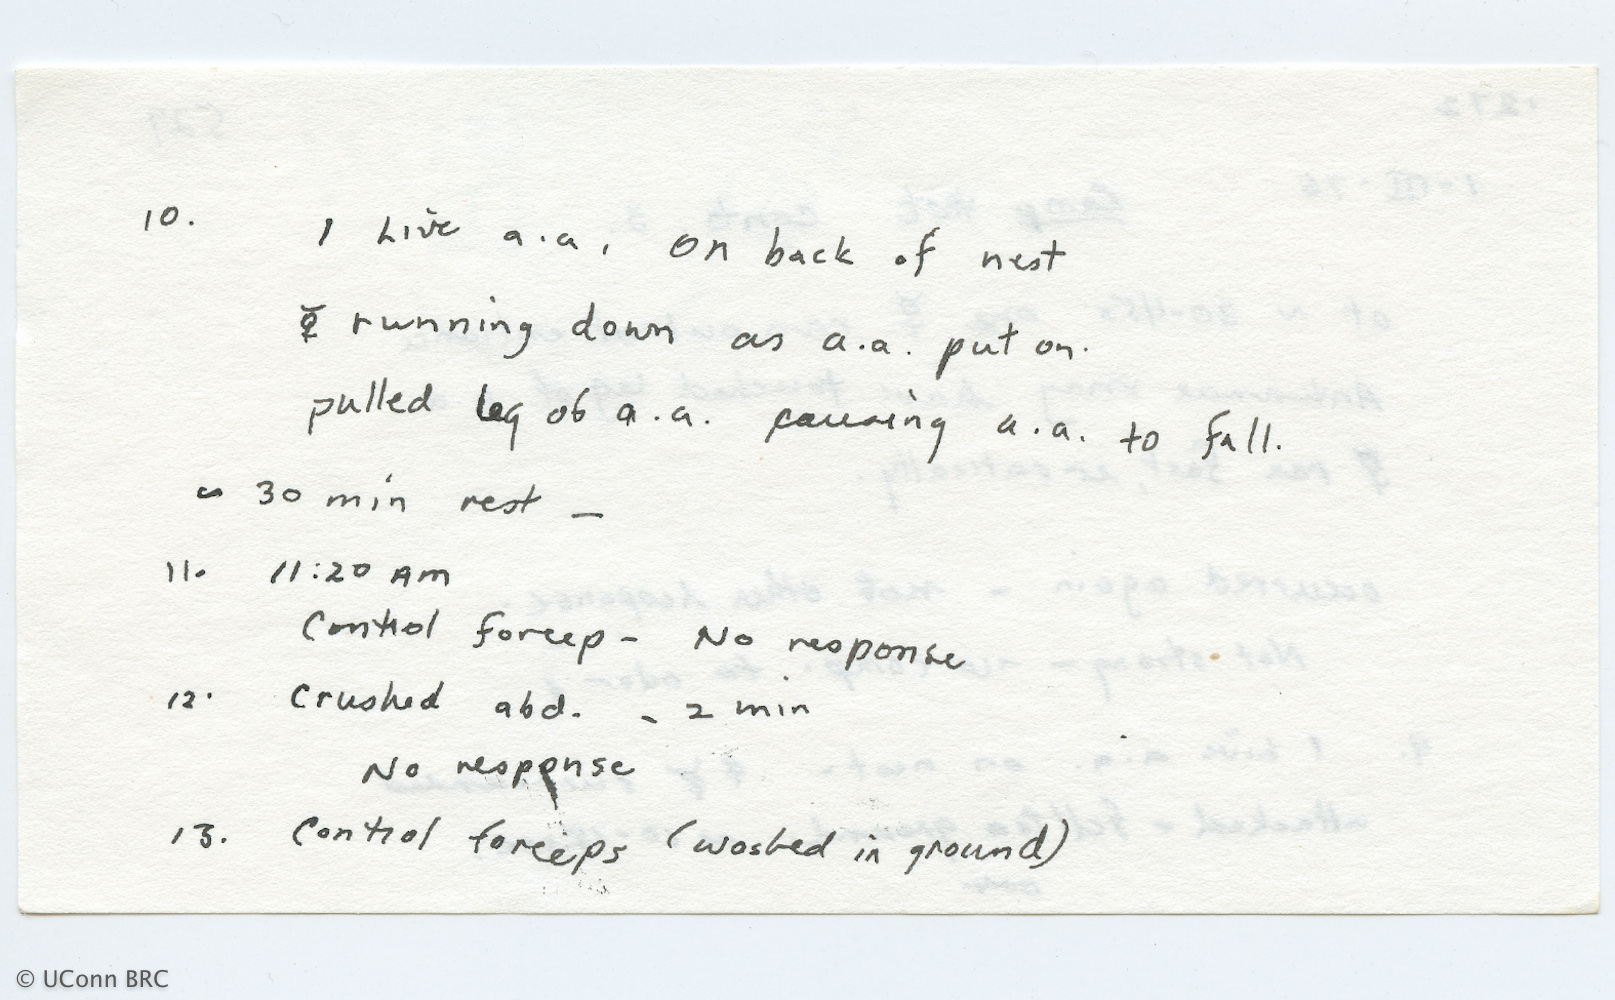 10. 1 Live a.a. on back of nest
☿ running down as a.a. put on.
pulled leg of a.a. causing a.a. to fall.
~ 30 min rest –
11. 11:20 AM
Control forcep - No response
12. Crushed abd. - 2 min
No response
13. Control forceps (washed in ground)
© UConn BRC